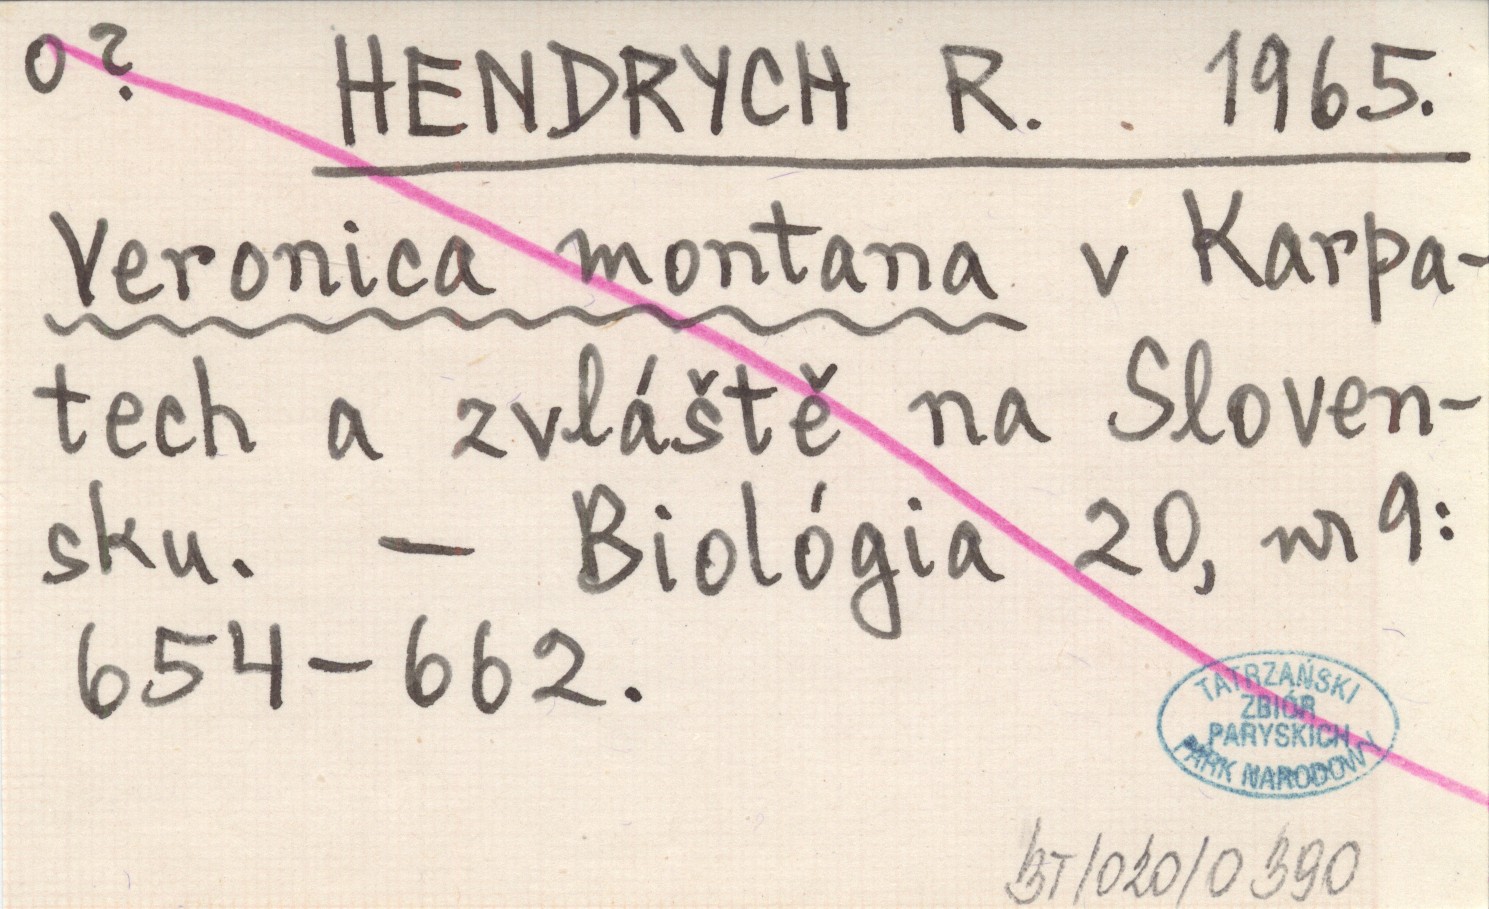 o?
HENDRYCH R. 1965.
Veronica montana v Karpa-
tech a zvláště na Sloven-
sku. — Biológia 20, nr 9:
654-662.
TATRZAŃSKI
ZBIÓR
PARYSKICH
PARK NARODOWY
BT/020/0390